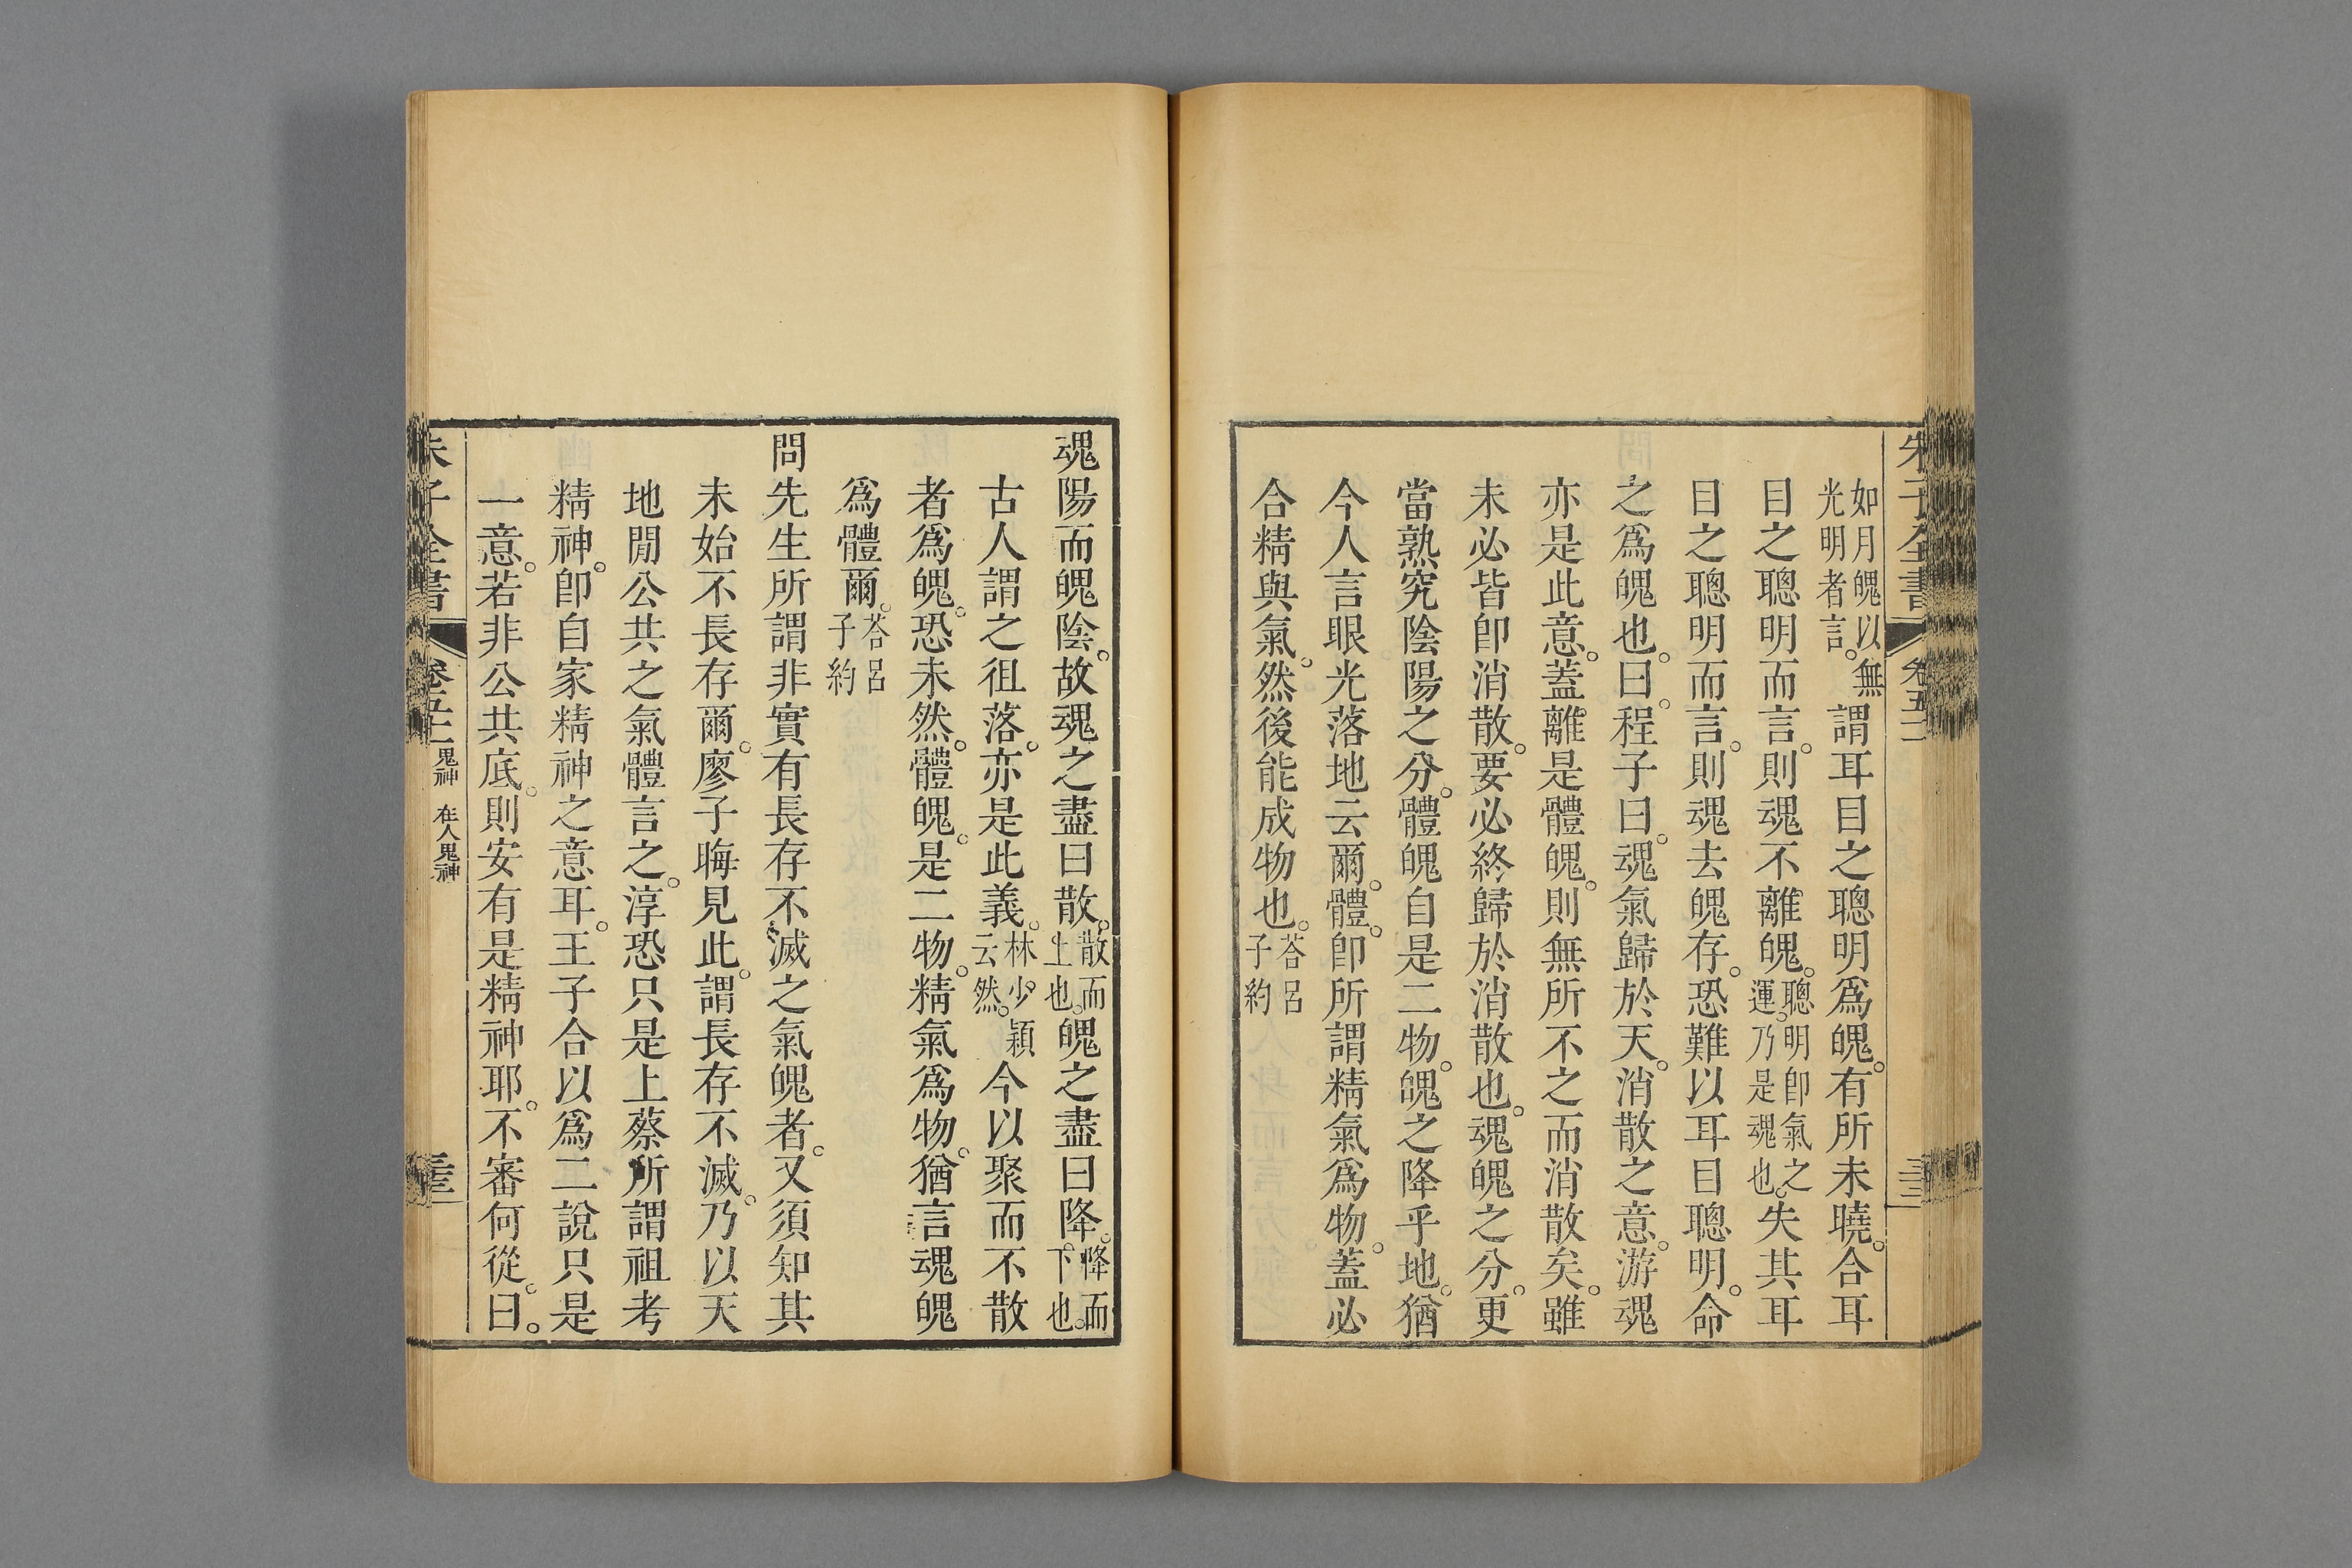 朱子全書 卷五二 三十二
如月魄以無光明者言。謂耳目之聰明爲魄。有所未曉。合耳
目之聰明而言。則魂不離魄。聰明卽氣之運。乃是魂也。失其耳
目之聰明而言。則魂去魄存。恐難以耳目聰明。命
之爲魄也。曰。程子曰。魂氣歸於天。消散之意。游魂
亦是此意。蓋離是體魄。則無所不之而消散矣。雖
未必皆卽消散。要必終歸於消散也。魂魄之分。更
當熟究陰陽之分。體魄自是二物。魄之降乎地。猶
今人言眼光落地云爾。體。卽所謂精氣爲物。蓋必
合精與氣。然後能成物也。荅呂子約
魂陽而魄陰。故魂之盡曰散。散而上也。魄之盡曰降。降而下也。
古人謂之徂落。亦是此義。林少穎云然。今以聚而不散
者爲魄。恐未然。體魄。是二物。精氣爲物。猶言魂魄
爲體爾。荅呂子約
問先生所謂非實有長存不滅之氣魄者。又須知其
未始不長存爾。廖子晦見此。謂長存不滅。乃以天
地閒公共之氣體言之。淳恐只是上蔡所謂祖考
精神。卽自家精神之意耳。王子合以爲二說只是
一意。若非公共底。則安有是精神耶。不審何從。曰。
朱子全書 卷五二 鬼神 在人鬼神 三十三